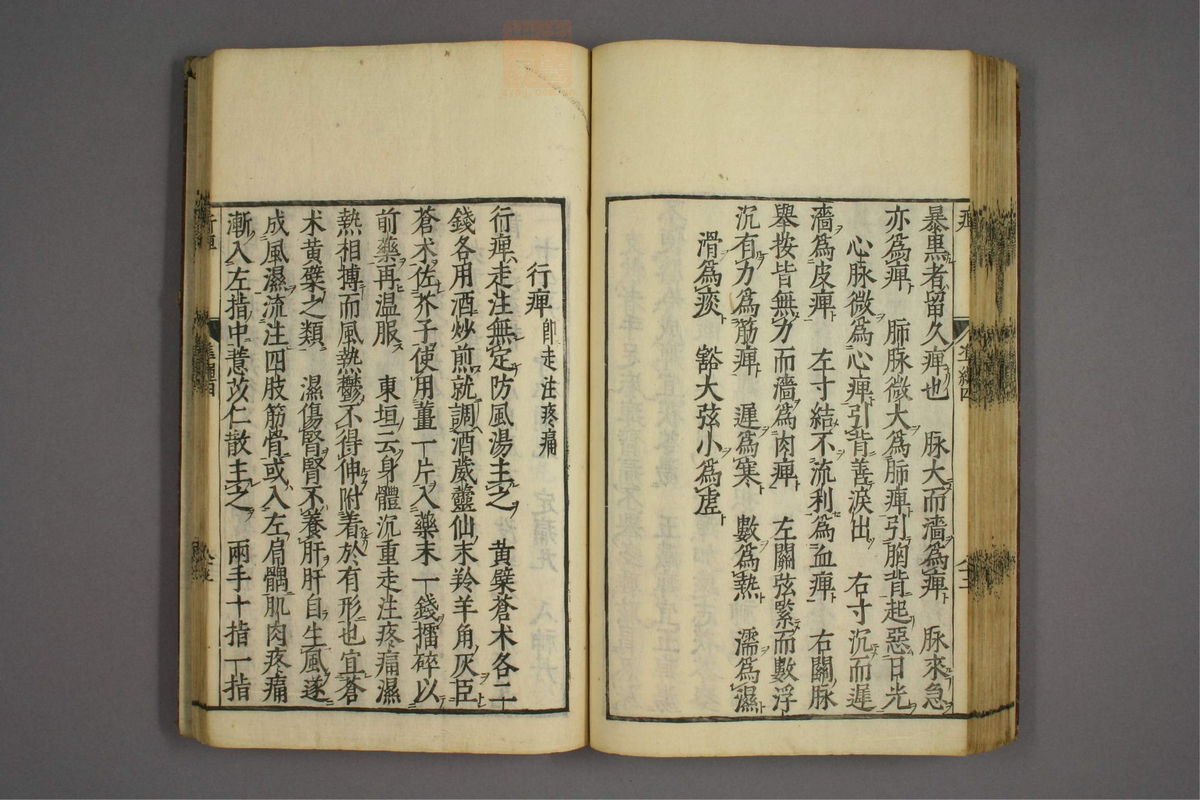 暴黒者留久痺也　脉大而濇為痺　脉來急
亦為痺　肺脉微大為肺痺引胸背起惡日光
心脉微為心痺引背善淚出　右寸沉而遲
濇為皮痺　左寸結不流利為血痺　右關脉
舉按皆無力而濇為肉痺　左關弦緊而數浮
沉有力為筋痺　遲為寒　數為熱　濡為濕
滑為痰　豁大弦小為虛
行痺 卽走注疼痛
行痺走注無定防風湯主之　黄蘗蒼术各二
錢各用酒炒煎就調酒葳靈仙末羚羊角灰臣
蒼术佐芥子使用薑一片入藥末一錢擂碎以
前藥再温服　東垣云身體沉重走注疼痛濕
熱相搏而風熱鬱不得伸附着於有形也宜蒼
术黄蘗之類　濕傷腎腎不養肝肝自生風遂
成風濕流注四肢筋骨或入左肩髃肌肉疼痛
漸入左指中薏苡仁散主之　兩手十指一指